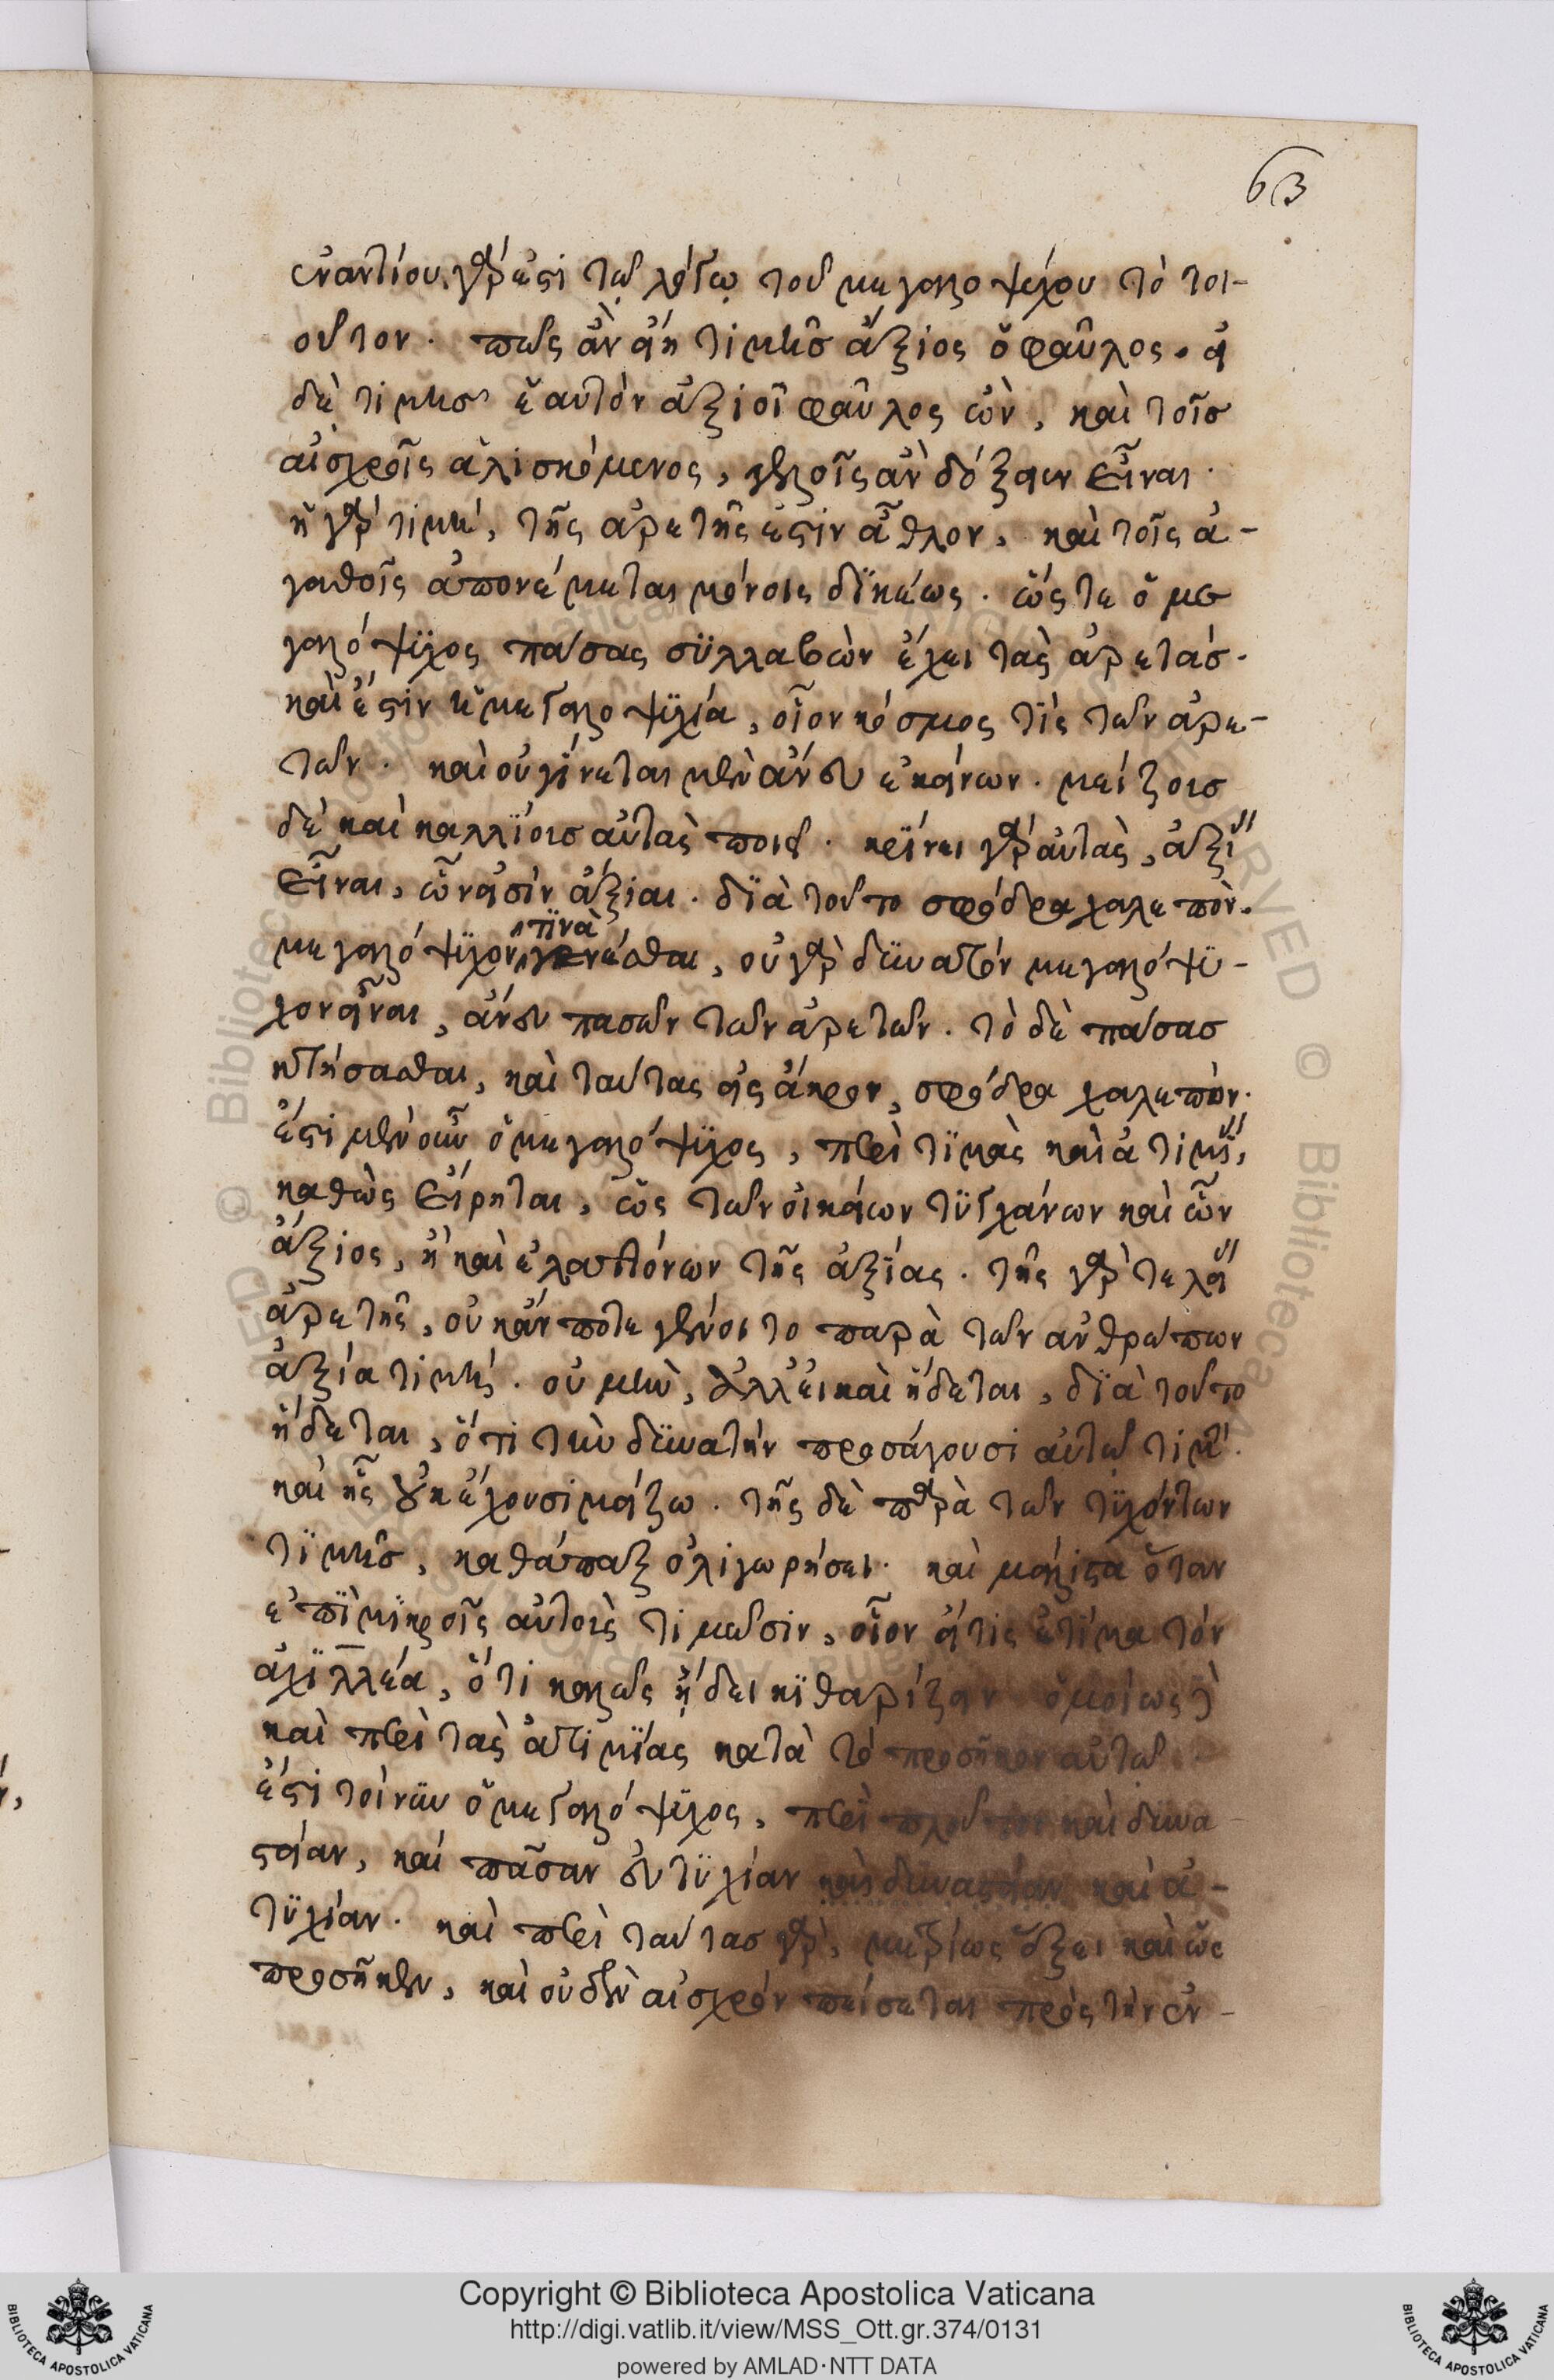 63
ἐναντίον γάρ ἐστι τῷ λόγῳ τοῦ μεγαλοψύχου τὸ τοι-
οῦτον. πῶς ἂν εἴη τιμῆς ἄξιος ὁ φαῦλος. εἰ
δὲ τιμῆς ἑαυτὸν ἀξιοῖ φαῦλος ὢν, καὶ τοῖς
αἰσχροῖς ἁλισκόμενος, γελοῖος ἂν δόξειεν εἶναι.
ἡ γὰρ τιμή, τῆς ἀρετῆς ἐστὶν ἆθλον, καὶ τοῖς ἀ-
γαθοῖς ἀπονέμεται μόνοις δικαίως. ὥστε ὁ με
γαλόψϋχος πάσας σϋλλαβὼν ἔχει τὰς ἀρετάς.
καὶ ἔστιν ἡ μεγαλοψϋχία, οἷον κόσμος τὶς τῶν ἀρε-
τῶν. καὶ οὐ γίνεται μὲν ἄνευ ἐκείνων. μείζους
δὲ καὶ καλλΐους αὐτὰς ποιεῖ. κρΐνει γὰρ αὐτὰς, ἀξί''
εἶναι, ὧν εἰσὶν ἄξιαι. δϊὰ τοῦτο σφόδρα χαλεπὸν.
τϊνὰ
μεγαλόψϋχον γενέσθαι, οὐ γὰρ δϋνατόν μεγαλόψϋ-
χον εἶναι, ἄνευ πασῶν τῶν ἀρετῶν. τὸ δὲ πάσας
κτήσασθαι, καὶ ταύτας εἰς ἄκρον, σφόδρα χαλεπὸν.
ἔστι μὲν οὖν ὁ μεγαλόψϋχος, περὶ τϊμὰς καὶ ἀτιμΐ'',
καθὼς εἴρηται, ὡς τῶν οἰκείων τϋγχάνων καὶ ὧν
ἄξιος, ἢ καὶ ἐλαττόνων τῆς ἀξίας. τῆς γὰρ τελεί''
ἀρετῆς, οὐκ ἄν ποτε γένοιτο παρὰ τῶν ἀνθρώπων
ἀξία τιμή. οὐ μὴν, ἀλλ' εἰ καὶ ἥδεται, δϊὰ τοῦτο
ἥδεται, ὅτι τὴν δϋνατήν προσάγουσι αὐτῷ τιμ'.
καὶ ἧς οὐκ ἔχουσι μείζω. τῆς δὲ παρὰ τῶν τϋχόντων
τϊμῆς, καθάπαξ ὀλιγωρήσει. καὶ μάλιστα ὅταν
ἐπϊ μϊκροῖς αὐτοὺς τιμῶσιν, οἷον εἴτις ἐτίμα τόν
ἀχϊλλέα, ὅτι καλῶς ᾔδει κϊθαρίζειν ὁμοίως δὲ
καὶ περὶ τὰς ἀτιμΐας κατὰ τὸ προσῆκον αὐτῷ.
ἔστι τοίνϋν ὁ μεγαλόψϋχος, περὶ πλοῦτον καὶ δϋνα
στείαν, καὶ πᾶσαν εὐτϋχίαν καὶ δυναστείαν καὶ ἀ-
τϋχίαν. καὶ περὶ ταύτας γὰρ, μετρίως ἕξει καὶ ὡς
προσῆκεν, καὶ οὐδὲν αἰσχρόν πείσεται πρὸς τὴν εὐ-
Copyright © Biblioteca Apostolica Vaticana
http://digi.vatlib.it/view/MSS_Ott.gr.374/0131
powered by AMLAD·NTT DATA